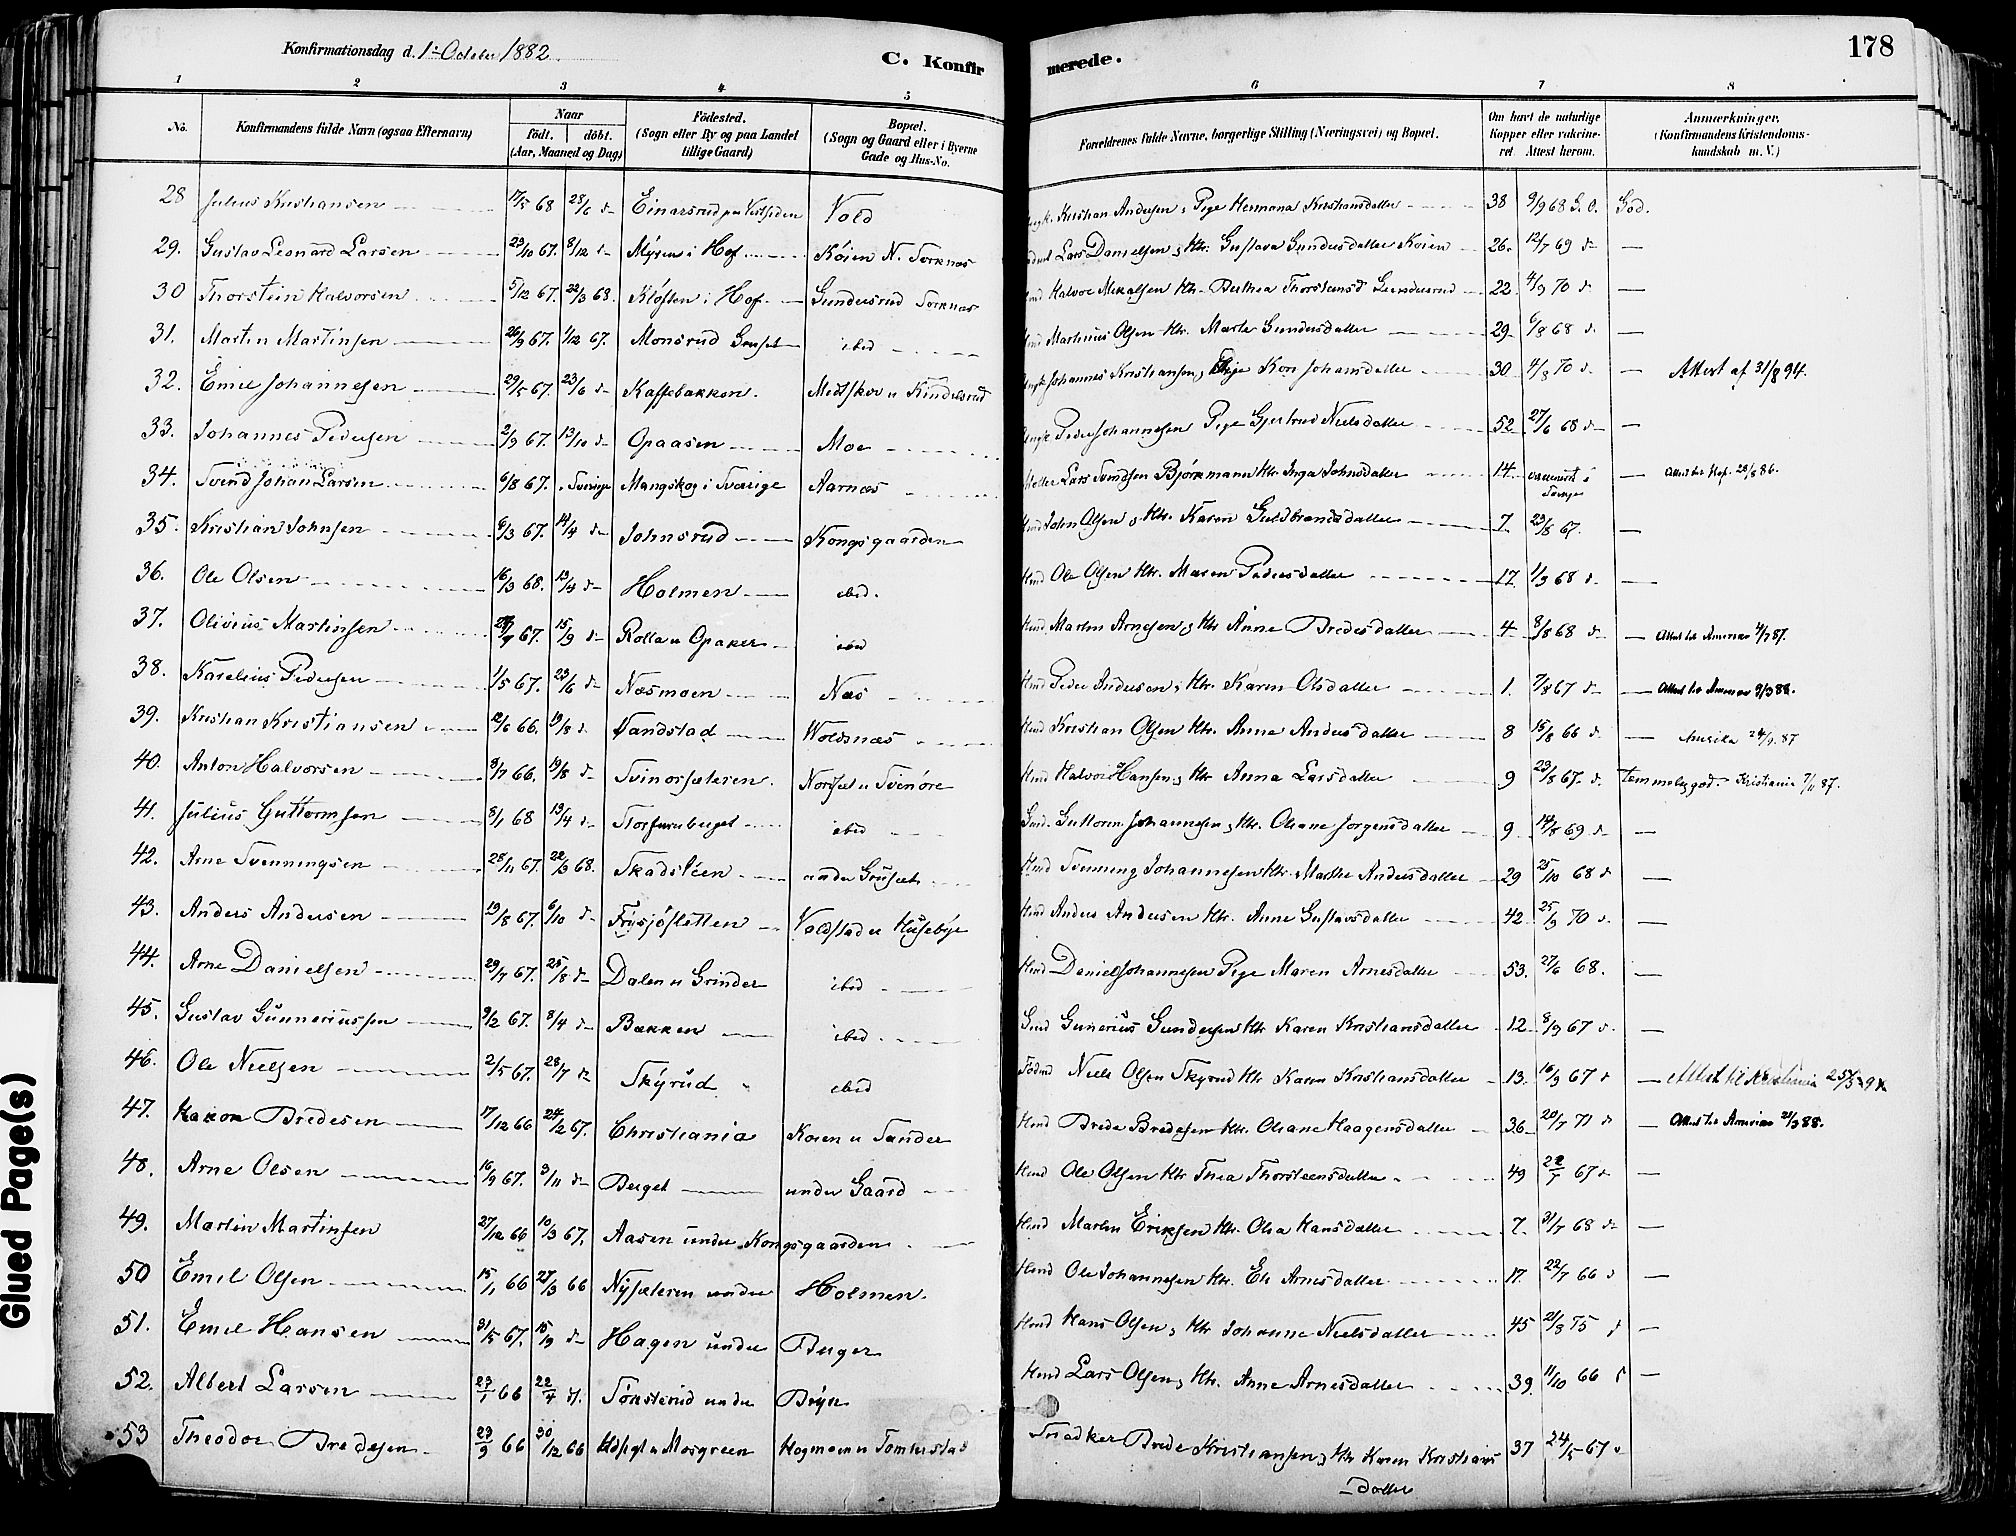 Konfirmationsdag d. 1ste October 1882.
C. Konfirmerede.
178
1 2 3 4 5 6 7 8
No. Konfirmandens fulde Navn (ogsaa Efternavn) Naar født. døbt. (Aar, Maaned og Dag) Födested. (Sogn eller By og paa Landet tillige Gaard) Bopæl. (Sogn og Gaard eller i Byerne Gade og Hus-No. Forældrenes fulde Navne, borgerlige Stilling (Næringsvei) og Bopæl. Om havt de naturlige Kopper eller vakcineret Attest herom. Anmærkninger. (Konfirmandens Kristendomskundskab m. V.)
28 Julius Kristiansen 17/5 68 28/6 d Einarsrud paa Vestsiden Vold Kristian Andersen, Pige Hermana Kristiansdatter 38 9/9 68 S.O. God.
29. Gustav Leonard Larsen 23/10 67. 8/12 d Myren i Hof Köien N. Torknæs Lars Danielsen, Ktr. Gustava Gundersdatter Köien 26. 12/7 69 d —
30 Thorstein Halvorsen 5/12 67. 22/3 68. Kløften i Hof Gundersrud Torknæs Halvor Mikalsen Ktr. Berthea Thorstensd Gundersrud 22 4/9 70 d —
31. Martin Martinsen 26/9 67. 1/12 67. Monsrud Gruset ibid Martinius Olsen Ktr. Marte Gundersdatter 29 6/8 68 d. —
32. Emil Johannesen 29/5 67. 23/6 d Kaffebakken. Midtskov u Kindelsrud Johannes Kristiansen, Pige Kari Johansdatter 30 4/8 70 d. — Attest af 31/8 94.
33. Johannes Pedersen 2/9 67. 13/10 d Opaasen Moe Peder Johannesen Pige Gjertrud Nielsdatter 52 27/6 68 d —
34. Svend Johan Larsen 6/8 67. Sverige Mangskog i Sverige Aarnæs Lars Svendsen Björkmann Ktr. Inga Johnsdatter 14. vaccineret i Sverige — Attest til Hof. 28/8 86.
35. Kristian Johnsen 6/3 67. 14/4 d Johnsrud Kongsgaarden John Olsen, Ktr. Karen Guldbrandsdatter 7. 23/8 67. —
36. Ole Olsen 16/3 68. 13/4 d Holmen ibid. Hmd Ole Olsen Ktr. Maren Pedersdatter 17. 1/9 68 d. —
37. Olivius Martinsen 67. 15/9 d Rolla u Opaker ibid Hmd. Martin Arnesen, Ktr. Anne Bredesdatter 4 8/8 68 d — Attest til Amerika 4/7 87.
38. Karelius Pedersen 1/5 67. 23/6 d Næsmoen Næs Hmd Peder Andersen, Ktr. Karen Olsdatter 1. 7/8 67 d — Attest til Amerika 9/3 88.
39. Kristian Kristiansen 12/6 66. 19/8 d. Vandstad Woldsnæs Hmd Kristian Olsen Ktr. Anne Andersdatter 8 15/8 66 d. — Amerika 24/9 87
40. Anton Halvorsen 8/7 66. 19/8 d Svinorsæteren. Norset u Svenöre Hmd Halvor Hansen, Ktr Anna Larsdatter 9 23/8 67. d. temmelig god. Kristiania 7/11 87.
41. Julius Guttormsen 8/1 68 13/4 d Storfuruberget ibid Guttorm Johannesen, Ktr. Oleane Jörgensdatter 9 14/8 69 d —
42. Arne Svenningsen 28/11 67. 22/3 68. Skadsleen under Gruset Hmd Svenning Johannesen Ktr. Marthe Andersdatter 29 25/10 68 d —
43. Anders Andersen 19/8 67. 6/10 d Frysjösletten Voldstad u Huseby Hmd Anders Andersen Ktr. Anne Gustavsdatter 42. 25/9 70 d. —
44. Arne Danielsen 29/7 67. 25/8 d Dalen u Grinder ibid Hmd Daniel Johannesen Pige Maren Arnesdatter 53. 27/6 68. —
45. Gustav Gunneriussen 9/2 67. 8/4 d Bakken ibid. Gunerius Gundersen Ktr Karen Kristiansdatter 12 8/9 67 d. —
46. Ole Nielsen 2/5 67. 28/7 d Skyrud ibid Niels Olsen Skyrud Ktr Karen Kristiansdatter 13. 16/9 67 d — Attest til Kristiania 25/5 9
47. Hakon Bredesen 17/12 66 24/2 67. Christiania Koien u Sander Hmd Brede Bredesen Ktr. Oleane Haagensdatter 36 20/7 71 d — Attest til Amerika 21/3 88.
48. Arne Olsen 16/9 67. 3/11 d Berget under Gaard Hmd Ole Olsen Ktr Thea Thorsteensdatter 49 22/7 67 d —
49. Martin Martinsen 27/12 66 10/3 67. Aasen under Kongsgaarden Hmd Martin Eriksen Ktr. Olea Hansdatter 7. 31/7 68 d —
50 Emil Olsen 15/1 66 25/3 66 Nysæteren under Holmen. Hmd Ole Johannesen Ktr. Eli Arnesdatter 17. 22/7 66 d —
51. Emil Hansen 31/5 67. 15/9 d Hagen under Berger Hmd Hans Olsen, Ktr Johanne Nielsdatter 45 21/8 75 d —
52. Albert Larsen 23/1 66 22/4 d. Tönsterud under Bryn Hmd Lars Olsen, Ktr. Anne Arnesdatter 39. 11/10 66 d —
53 Theodor Bredesen 23/9 66 30/12 66 Mosgreen Hogmoen u Tomterstad Snedker Brede Kristiansen, Ktr Karen Kristiansdatter 37 24/5 67 d
Glued Page(s)